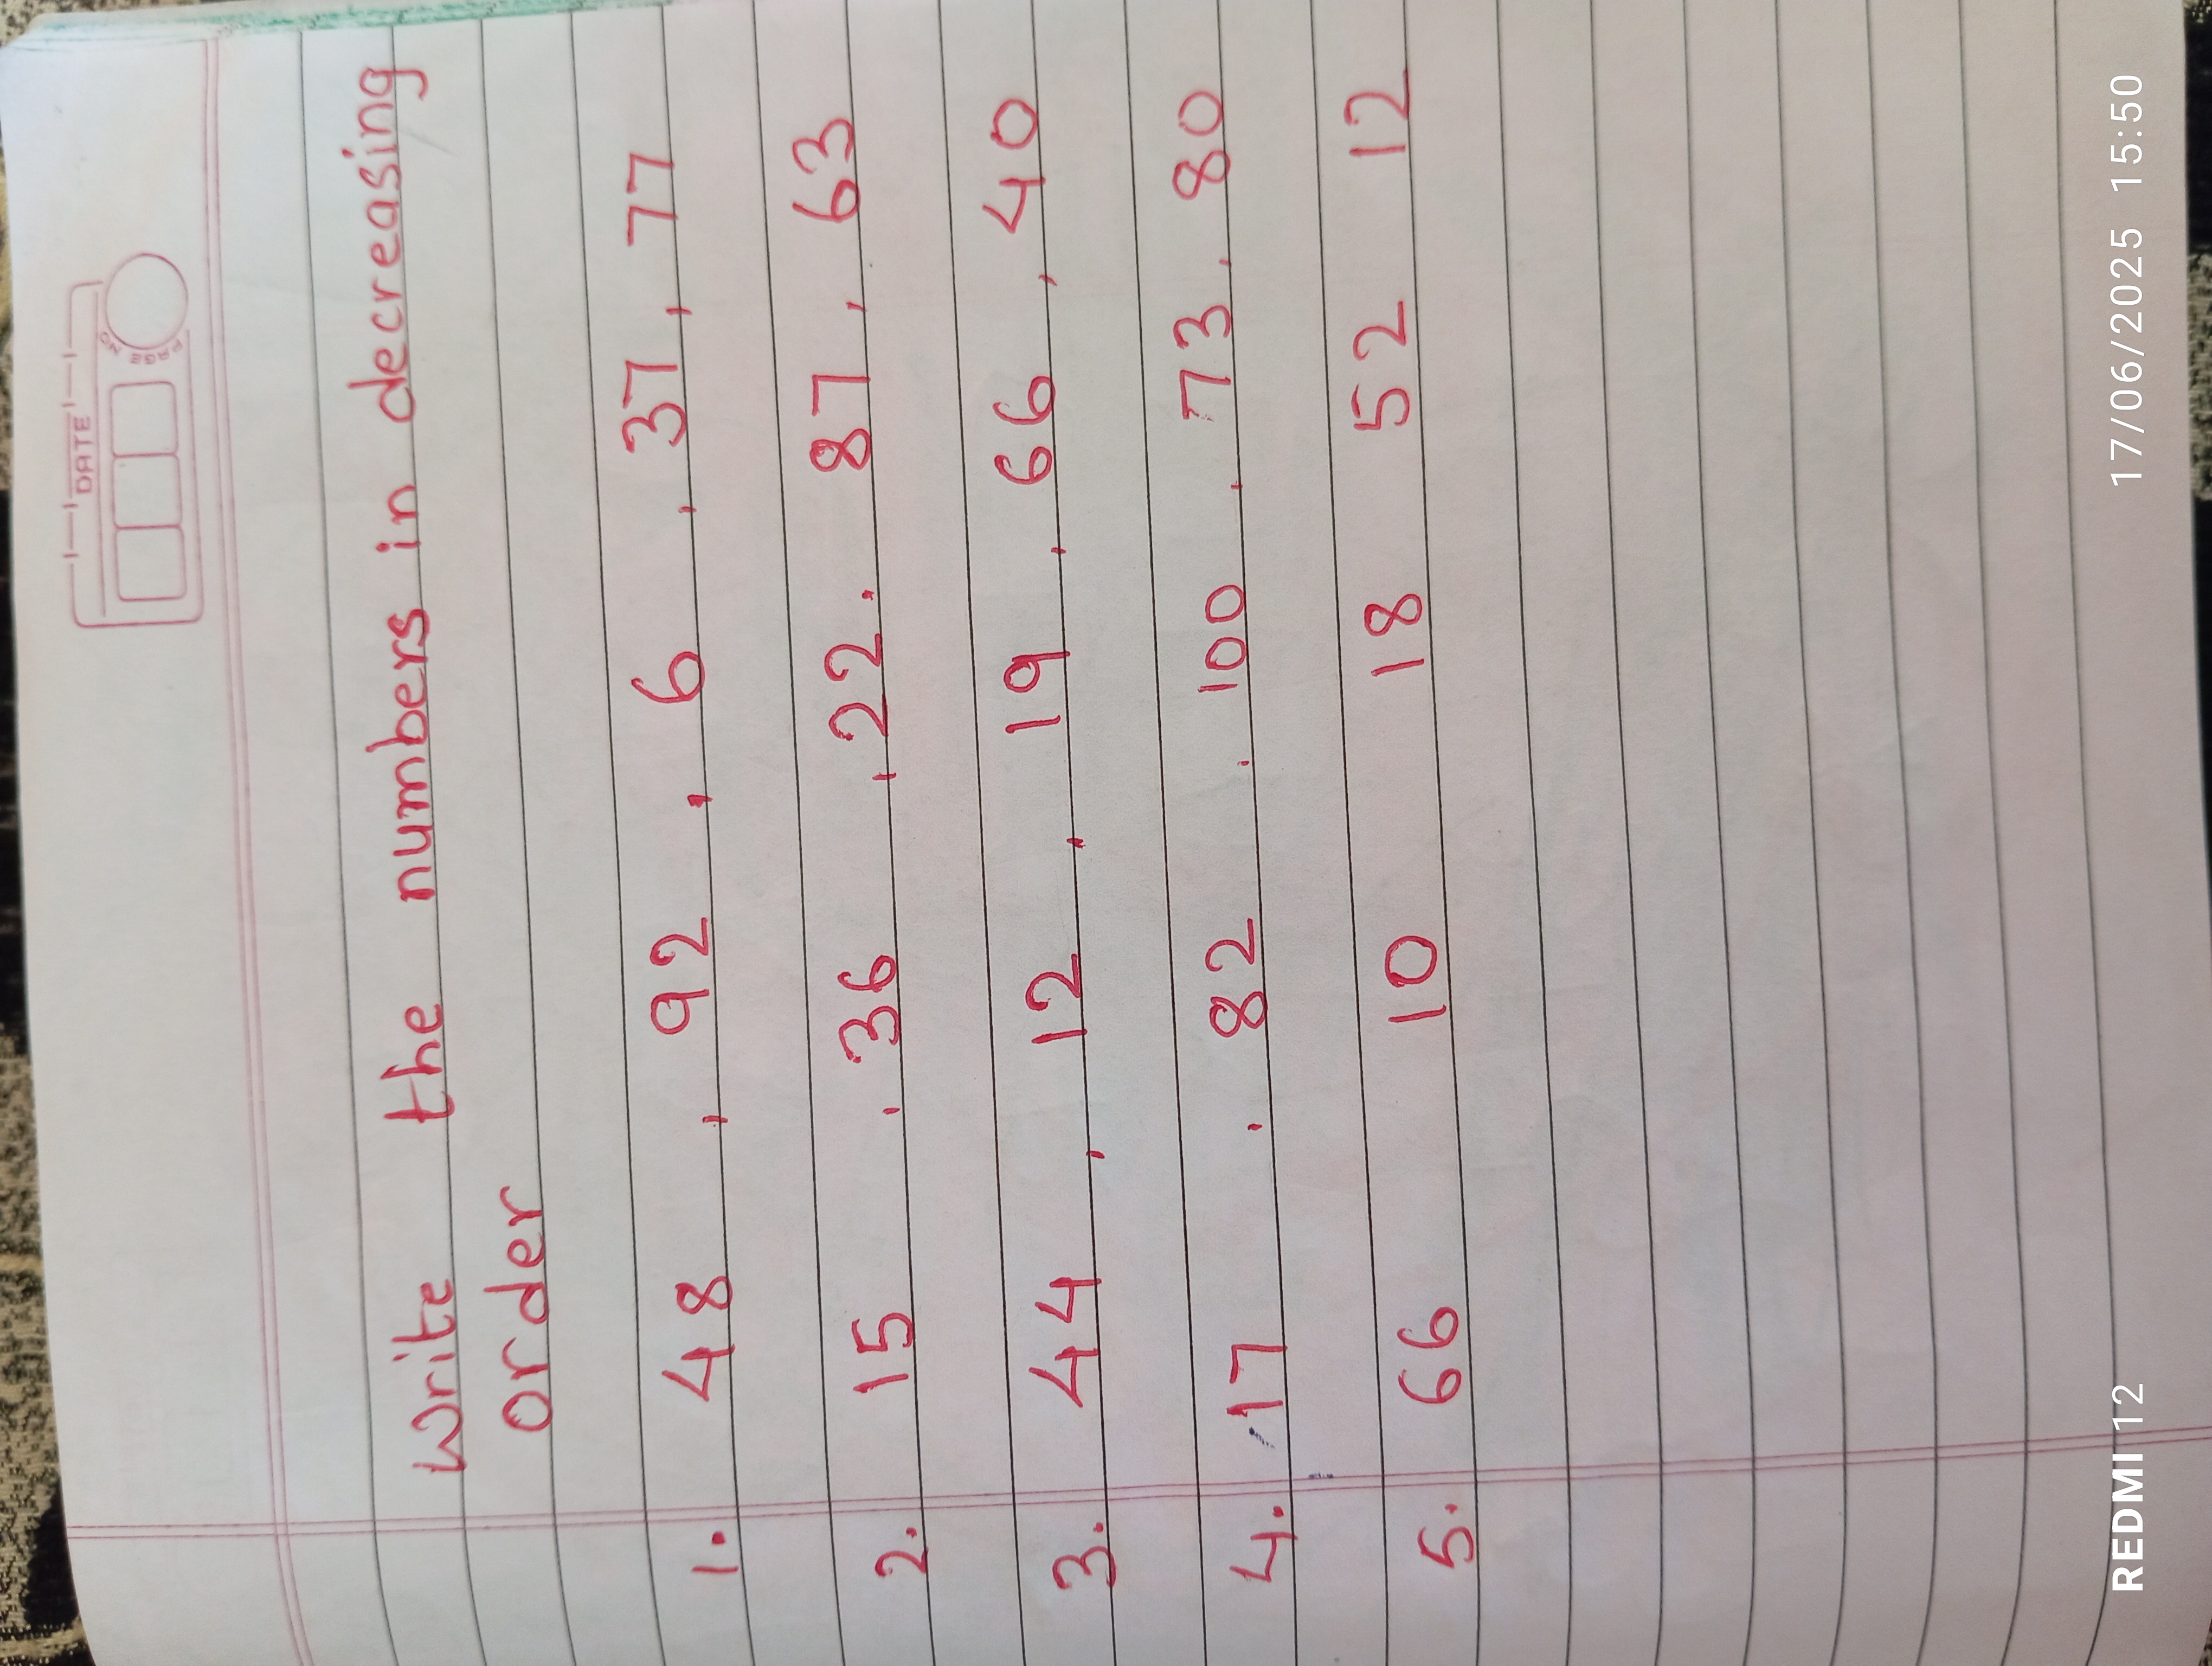 DATE
PAGE NO
Write the numbers in decreasing
order
1. 48 , 92 , 6 , 37 , 77
2. 15 , 36 , 22 . 87 , 63
3. 44 , 12 , 19 , 66 , 40
4. 17 , 82 , 100 , 73 , 80
5. 66 10 18 52 12
REDMI 12 17/06/2025 15:50